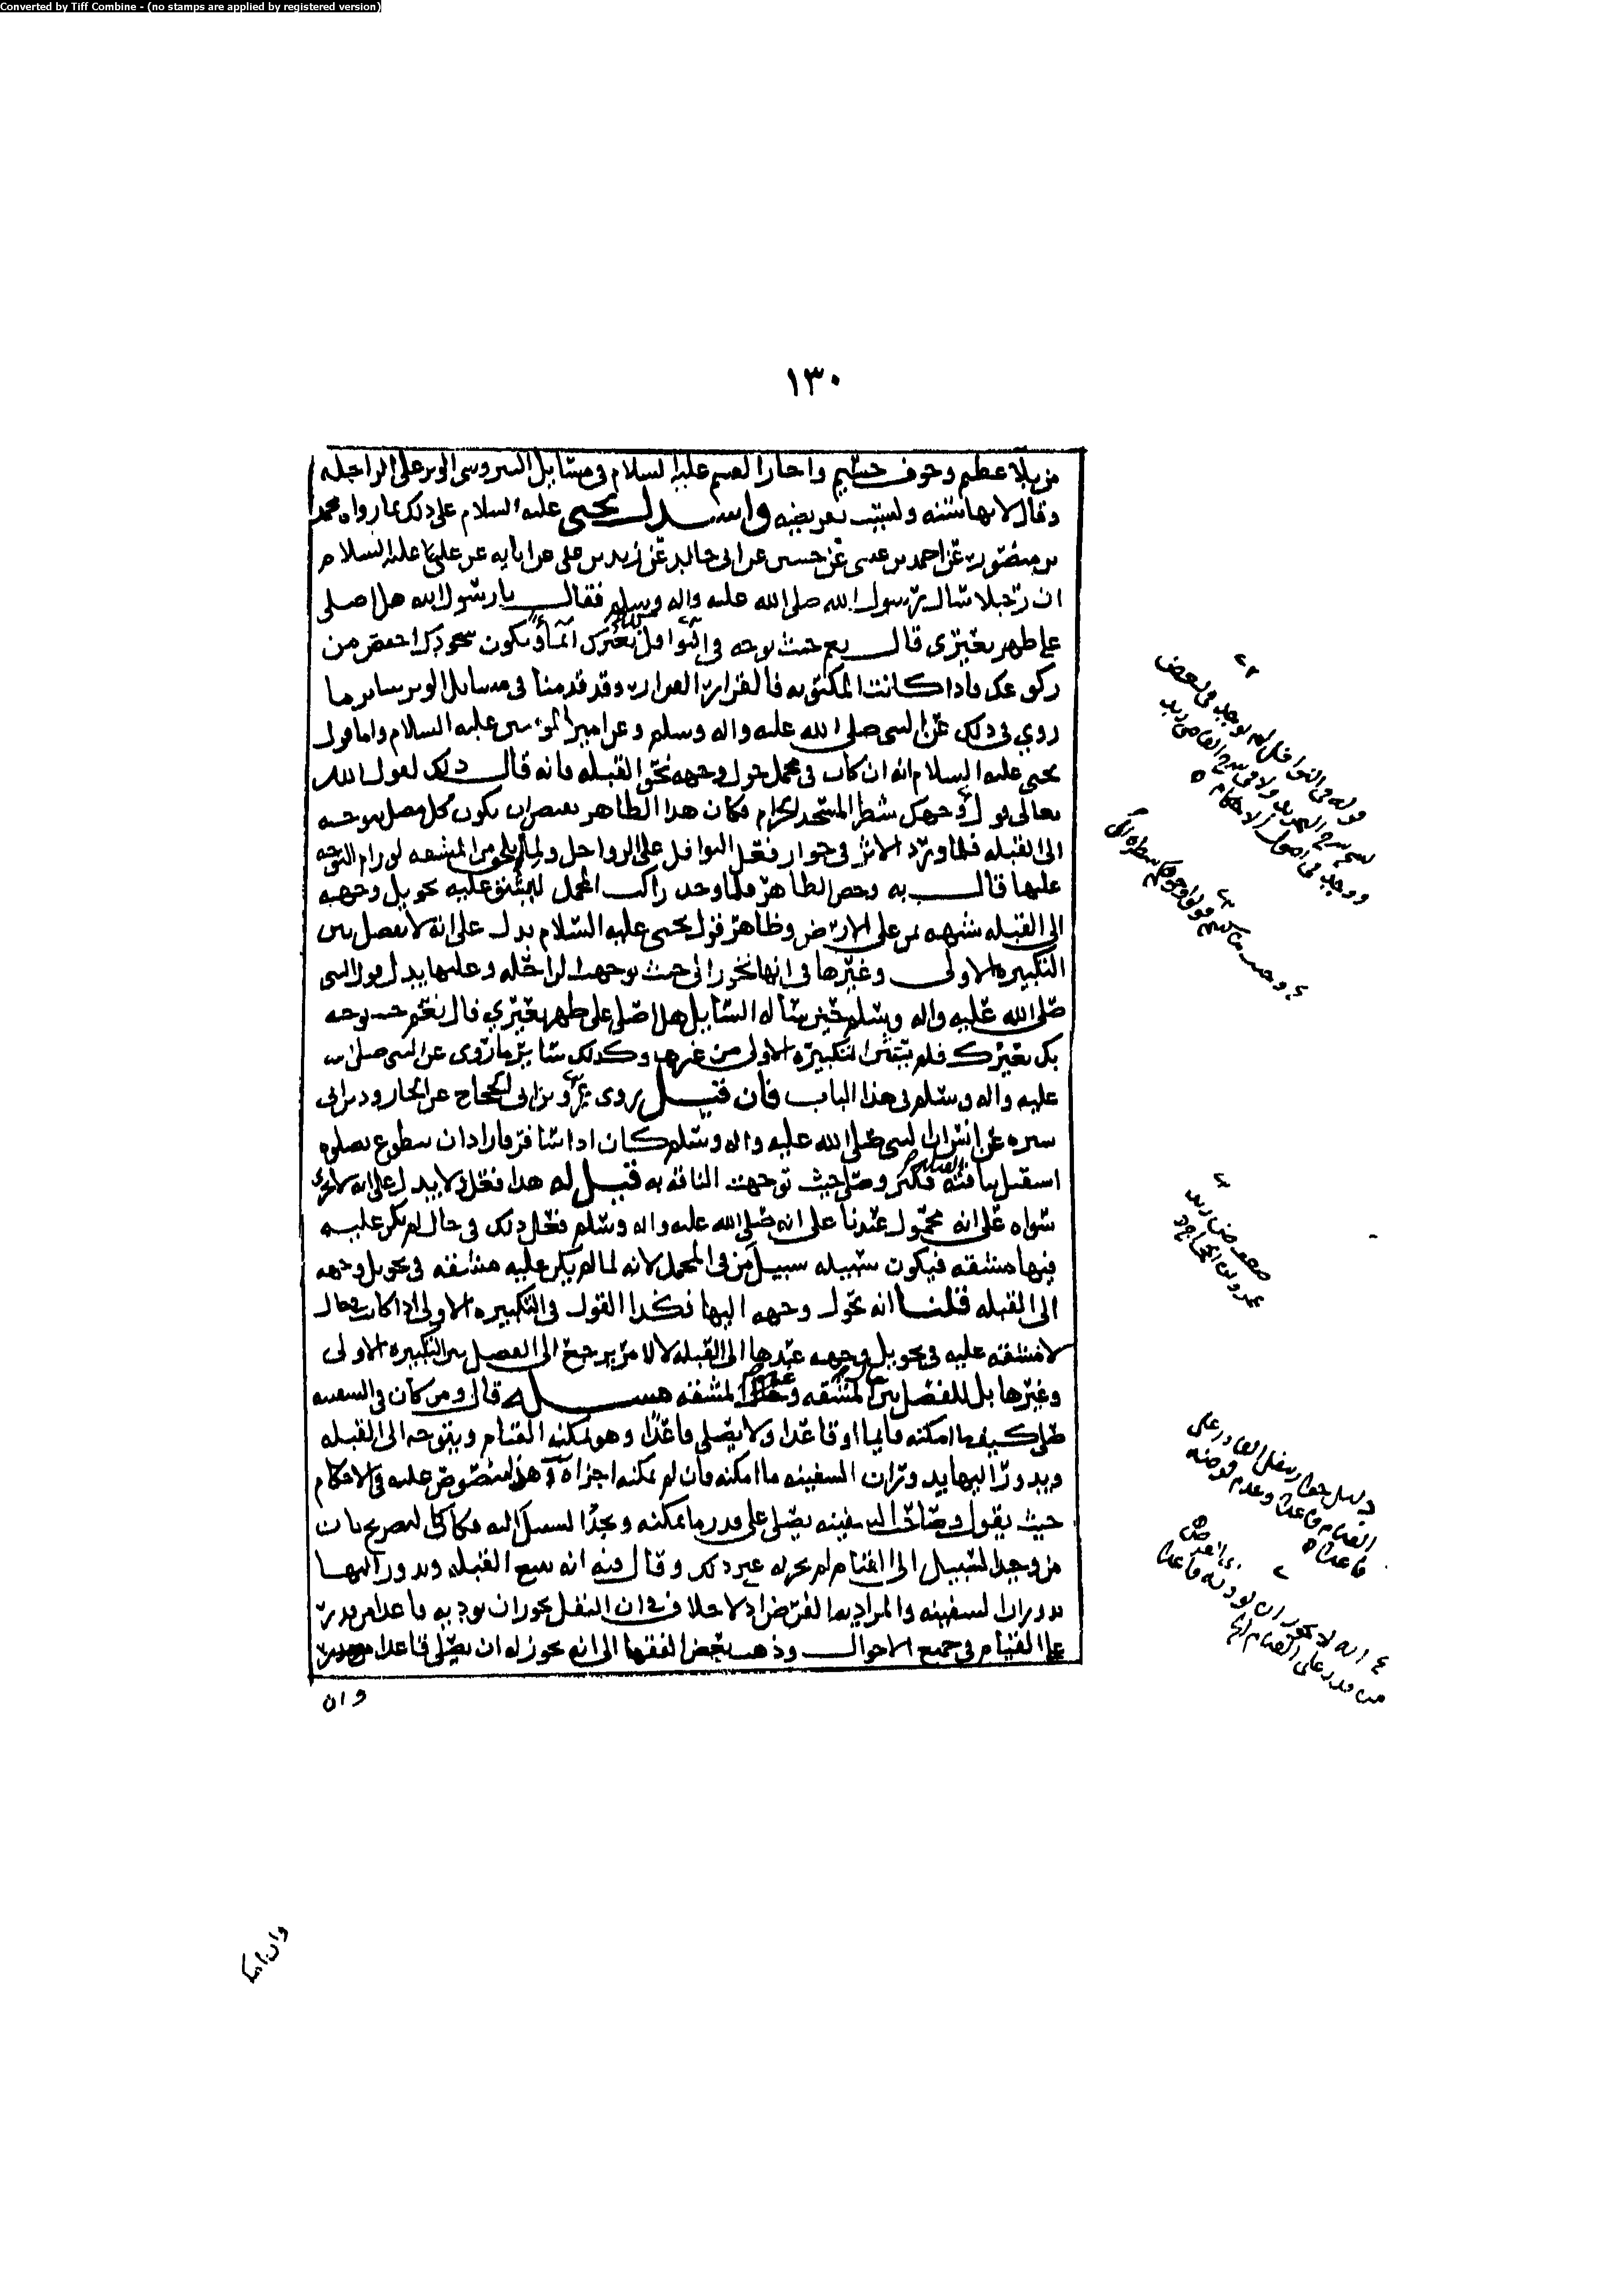 Converted by Tiff Combine - (no stamps are applied by registered version)
١٣٠
من بلاء عظيم وخوف جسيم واجاز القسم عليه السلام في مسائل النيروسي الوتر على الراحلة
وقال لانها سنة وليست بفريضة واستدل يحيى عليه السلام على ذلك بما رواه محمد
بن منصور عن احمد بن عيسى عن حسين عن ابي خالد عن زيد بن علي عن ابايه عن علي عليه السلام
ان رجلا سال رسول الله صلى الله عليه واله وسلم فقال يا رسول الله هل اصلي
على ظهر بعيري قال نعم حيث توجه في النوافل بعيرك ايماء ويكون سجودك اخفض من
ركوعك فاذا كانت المكتوبه فالقرار القرار وقد قدمنا في مسايل الوتر ساير ما
روي في ذلك عن النبي صلى الله عليه واله وسلم وعن امير المؤمنين عليه السلام واما قول
يحيى عليه السلام انه ان كان في محمل حول وجهه نحو القبله فانه قال ذلك لقول الله
تعالى فول وجهك شطر المسجد الحرام فكان هذا الظاهر يقتضي ان يكون كل مصل يتوجه
الى القبله فلما ورد الاثر في جواز فعل النوافل على الرواحل ولما يلحق من المشقه لو رام التوجه
عليها قال به وخص الظاهر فلما وجد راكب المحمل لا يشق عليه تحويل وجهه
الى القبله شبهه بمن على الارض وظاهر قول يحيى عليه السلام يدل على انه لا يفصل بين
التكبيره الاولى وغيرها في انها تجوز الى حيث توجهت الراحله وعليها يدل قول النبي
صلى الله عليه واله وسلم حين ساله السايل هل اصلي على ظهر بعيري قال نعم حيث توجه
بك بعيرك فلم يستثن التكبيره الاولى من غيرها وكذلك ساير ما روى عن النبي صلى الله
عليه واله وسلم في هذا الباب فان قيل روى عمرو بن ابي الحجاج عن الجارود بن ابي
سبره عن انس ان النبي صلى الله عليه واله وسلم كان اذا سافر فاراد ان يتطوع بصلوه
استقبل بناقته القبله فكبر وصلى حيث توجهت الناقه به قيل له هذا فعل ولا يدل على انه لا يجزئ
سواه على انه محمول عندنا على انه صلى الله عليه واله وسلم فعل ذلك في حال لم يكن عليه
فيها مشقه فيكون سبيله سبيل من في المحمل لانه لما لم يكن عليه مشقه في تحويل وجهه
الى القبله قلنا انه يحول وجهه اليها فكذا القول في التكبيره الاولى اذا كانت حال
لا مشقه عليه في تحويل وجهه عندها الى القبله لا لامر يرجع الى الفصل بين التكبيره الاولى
وغيرها بل للفصل بين حال المشقه وحال غير المشقه مسئله قال ومن كان في السفينه
صلى كيفما امكنه قايما او قاعدا ولا يصلي قاعدا وهو يمكنه القيام ويتوجه الى القبله
ويدور اليها بدوران السفينه ما امكنه فان لم يمكنه اجزاه وهذا منصوص عليه في الاحكام
حيث يقول وصاحب السفينه يصلي على قدر ما يمكنه ويجد السبيل اليه فكان كالتصريح بان
من وجد السبيل الى القيام لم يجزه غير ذلك وقال فيه انه يتبع القبله ويدور اليها
بدوران السفينه والمراد بهذا الفرض اذ لا خلاف في ان النفل يجوز ان يوديه قاعدا من قدر
على القيام في جميع الاحوال وذهب بعض الفقها الى انه يجوز له ان يصلي قاعدا من قدر
وان
دليل جواز نفل القادر على
القيام قاعدا وعدم
قاعدا
عمرو بن الحجاج
انه لا يجوز ان يوديه قاعدا
من قدر على القيام